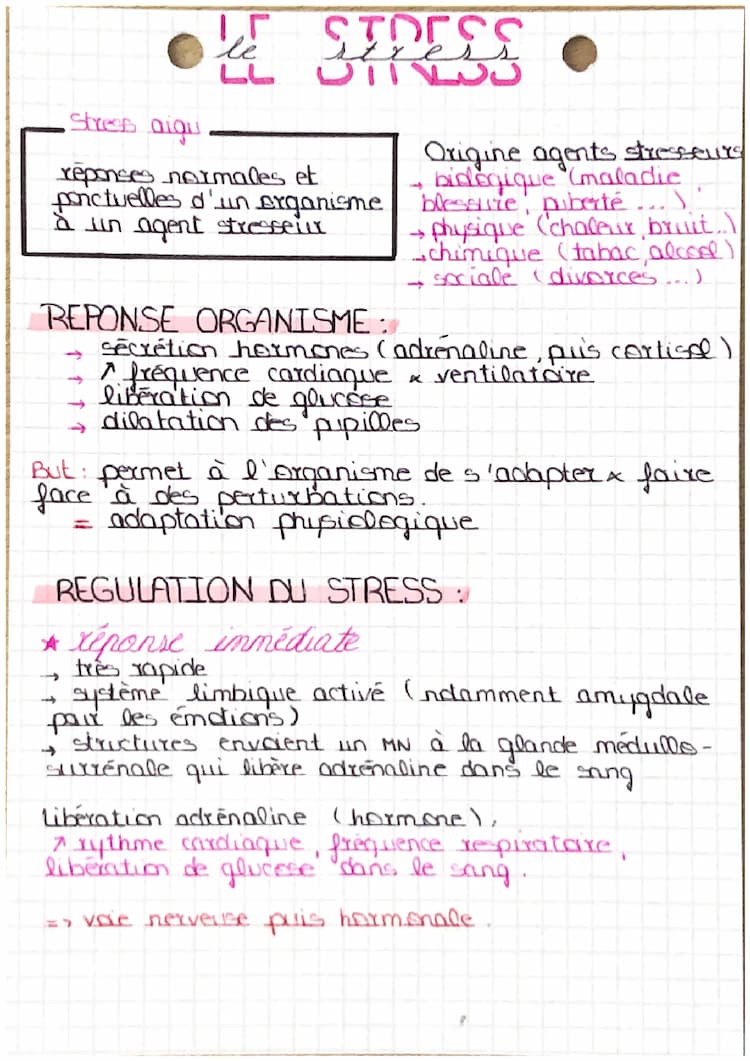 LE STRESS
le stress
Stress aigu
réponses normales et
ponctuelles d'un organisme
à un agent stresseur
Origine agents stresseurs
→ biologique (maladie,
blessure, puberté ...)
→ physique (chaleur, bruit..)
→ chimique (tabac, alcool)
→ sociale (divorces ...)
REPONSE ORGANISME :
→ sécrétion hormones (adrénaline, puis cortisol)
→ ↗ fréquence cardiaque & ventilatoire
→ libération de glucose
→ dilatation des pupilles
But : permet à l'organisme de s'adapter & faire
face à des perturbations.
= adaptation physiologique
REGULATION DU STRESS :
★ réponse immédiate
→ très rapide
→ système limbique activé (notamment amygdale
pour les émotions)
→ structures envoient un MN à la glande médullo-
surrénale qui libère adrénaline dans le sang
Libération adrénaline (hormone),
↗ rythme cardiaque, fréquence respiratoire,
libération de glucose dans le sang.
=> voie nerveuse puis hormonale.